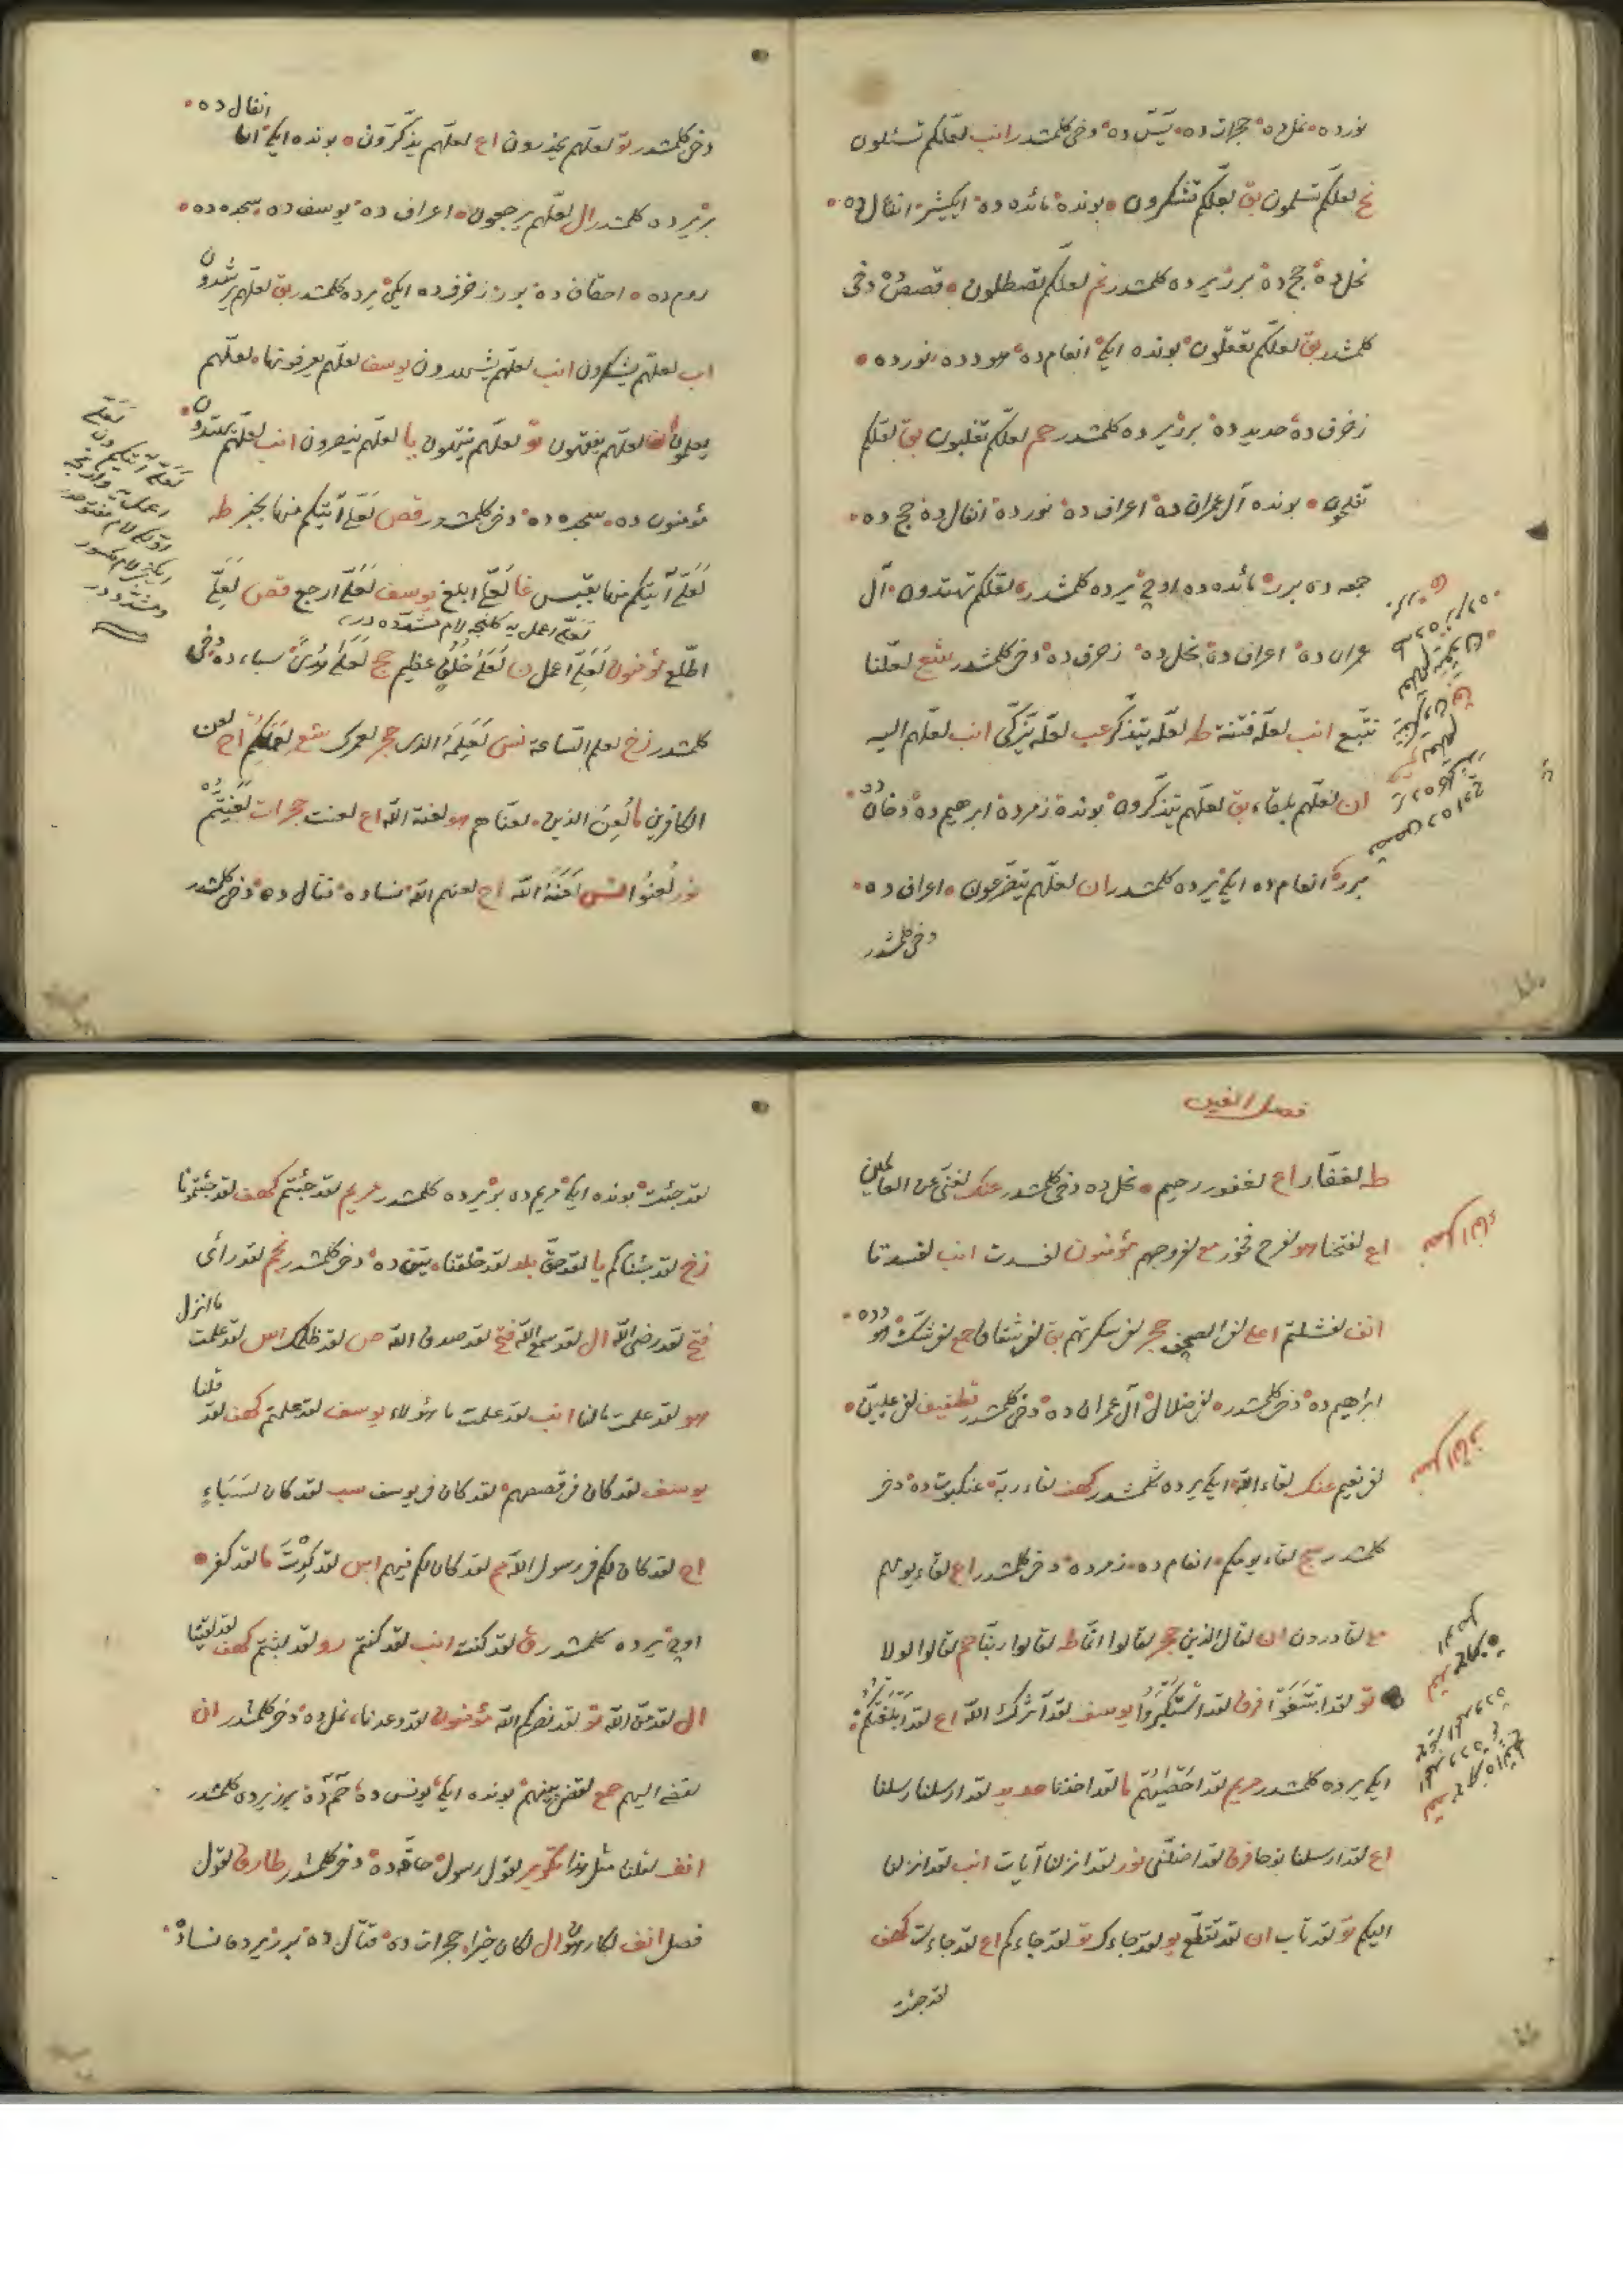 نورده نمل ده حجرات ده يسّ ده دخى كلمشدر انب لعلّكم تسئلون
نح لعلّكم تسلمون بق لعلّكم تشكرون بونده مائده ده ايكيشر انفال ده
نحل ده حج ده برر يرده كلمشدر نم لعلّكم تصطلون قصص دخى
كلمشدر بق لعلّكم تعقلون بونده ايكى انعام ده هود ده نورده
زخرف ده حديد ده برر يرده كلمشدر حم لعلّكم تغلبون بق لعلّكم
تفلحون بونده آل عمران ده اعراف ده نورده انفال ده حج ده
جمعه ده برر مائده ده اوچ يرده كلمشدر لعلّكم تهتدون آل
عمران ده اعراف ده نحل ده زخرف ده دخى كلمشدر شع لعلّنا
نتّبع انب لعلّه فتنة طه لعلّه يتذكّر عب لعلّه يزّكّى انب لعلّهم اليه
ان لعلّهم بلقاء بق لعلّهم يتذكّرون بونده زمرده ابرهيم ده دخان ده
برر انعام ده ايكى يرده كلمشدر ان لعلّهم يتضرّعون اعراف ده
دخى كلمشدر
انفال ده
دخى كلمشدر تو لعلّهم يحذرون اع لعلّهم يذّكّرون بونده ايكى
برر يرده كلمشدر ال لعلّهم يرجعون اعراف ده يوسف ده سجده ده
روم ده احقاف ده برر زخرف ده ايكى يرده كلمشدر بق لعلّهم يرشدون
اب لعلّهم يشكرون انب لعلّهم يشهدون يوسف لعلّهم يعرفونها لعلّهم
يعلمون لعلّهم يفقهون تو لعلّهم ينتهون يا لعلّهم ينصرون انب لعلّهم يهتدون
مؤمنون ده سجده ده دخى كلمشدر قص لعلّى آتيكم منها بخبر طه
لعلّى آتيكم منها بقبس غا لعلّى ابلغ يوسف لعلّى ارجع قص لعلّى
اطّلع مؤمنون لعلّى اعمل ن لعلى خلق عظيم حج لعلى هدى سباء ده دخى
كلمشدر زخ لعلم السّاعة نس لعلمه الذى حجر لعمرك شع لعملكم اح لعن
الكافرين ما لعن الذين لعنّاهم هو لعنة اللّه اع لعنت حجرات لعنتّم
نور لعنوا نس لعنه اللّه اح لعنهم اللّه نساده قتال ده دخى كلمشدر
فصل الغين
طه لغفّار اع لغفور رحيم نحل ده دخى كلمشدر عنك لغنىّ عن العالمين
اع لفتحنا هو لفرح فخور مع لفروجهم مؤمنون لفسدت انب لفسدتا
انف لفشلتم اعلى لفى الصحف حجر لفى سكرتهم بق لفى شقاق حج لفى شكّ هود ده
ابراهيم ده دخى كلمشدر لفى ضلال آل عمران ده دخى كلمشدر تطفيف لفى عليّين
لفى نعيم عنك لقاء اللّه ايكى يرده كلمشدر كهف لقاء ربّه عنكبوت ده دخى
كلمشدر سج لقاء يومكم انعام ده زمرده دخى كلمشدر اع لقاء يومهم
لقادرون ان لقال الذين حجر لقالوا انّما طه لقالوا ربّنا حم لقالوا لولا
تو لقد ابتغوا فرق لقد استكبروا يوسف لقد آثرك اللّه اع لقد ابلغتكم
ايكى يرده كلمشدر مريم لقد احصيهم ما لقد اخذنا حديد لقد ارسلنا رسلنا
اع لقد ارسلنا نوحا فرق لقد اضلّنى نور لقد انزلنا آيات انب لقد انزلنا
اليكم تو لقد تاب ان لقد تقطّع يو لقد جاءك تو لقد جاءكم اع لقد جاءت كهف
لقد جئت
لقد جئت بونده ايكى مريم ده برر يرده كلمشدر مريم لقد جئتم كهف لقد جئتمونا
زخ لقد جئناكم يا لقد حقّ بلد لقد خلقنا تين ده دخى كلمشدر نجم لقد رأى
فتح لقد رضى اللّه ال لقد سمع اللّه فتح لقد صدق اللّه ص لقد ظلمك اس لقد علمت ما انزل
هو لقد علمت مالنا انب لقد علمت ما هؤلاء يوسف لقد علمتم كهف لقد قلنا
يوسف لقد كان فى قصصهم لقد كان فى يوسف سب لقد كان لسباء
اح لقد كان لكم فى رسول اللّه مم لقد كان لكم فيهم اس لقد كدت ما لقد كفر
اوچ يرده كلمشدر ق لقد كنت انب لقد كنتم رو لقد لبثتم كهف لقد لقينا
ال لقد منّ اللّه تو لقد نصركم اللّه مؤمنون لقد وعدنا نمل ده دخى كلمشدر ان
لقضى اليهم حمع لقضى بينهم بونده ايكى يونس ده حم ده برر يرده كلمشدر
انف لقلنا مثل هذا تكوير لقول رسول حاقّه ده دخى كلمشدر طارق لقول
فصل انف لكارهون ال لكان خيرا حجرات ده قتال ده برر يرده نساده